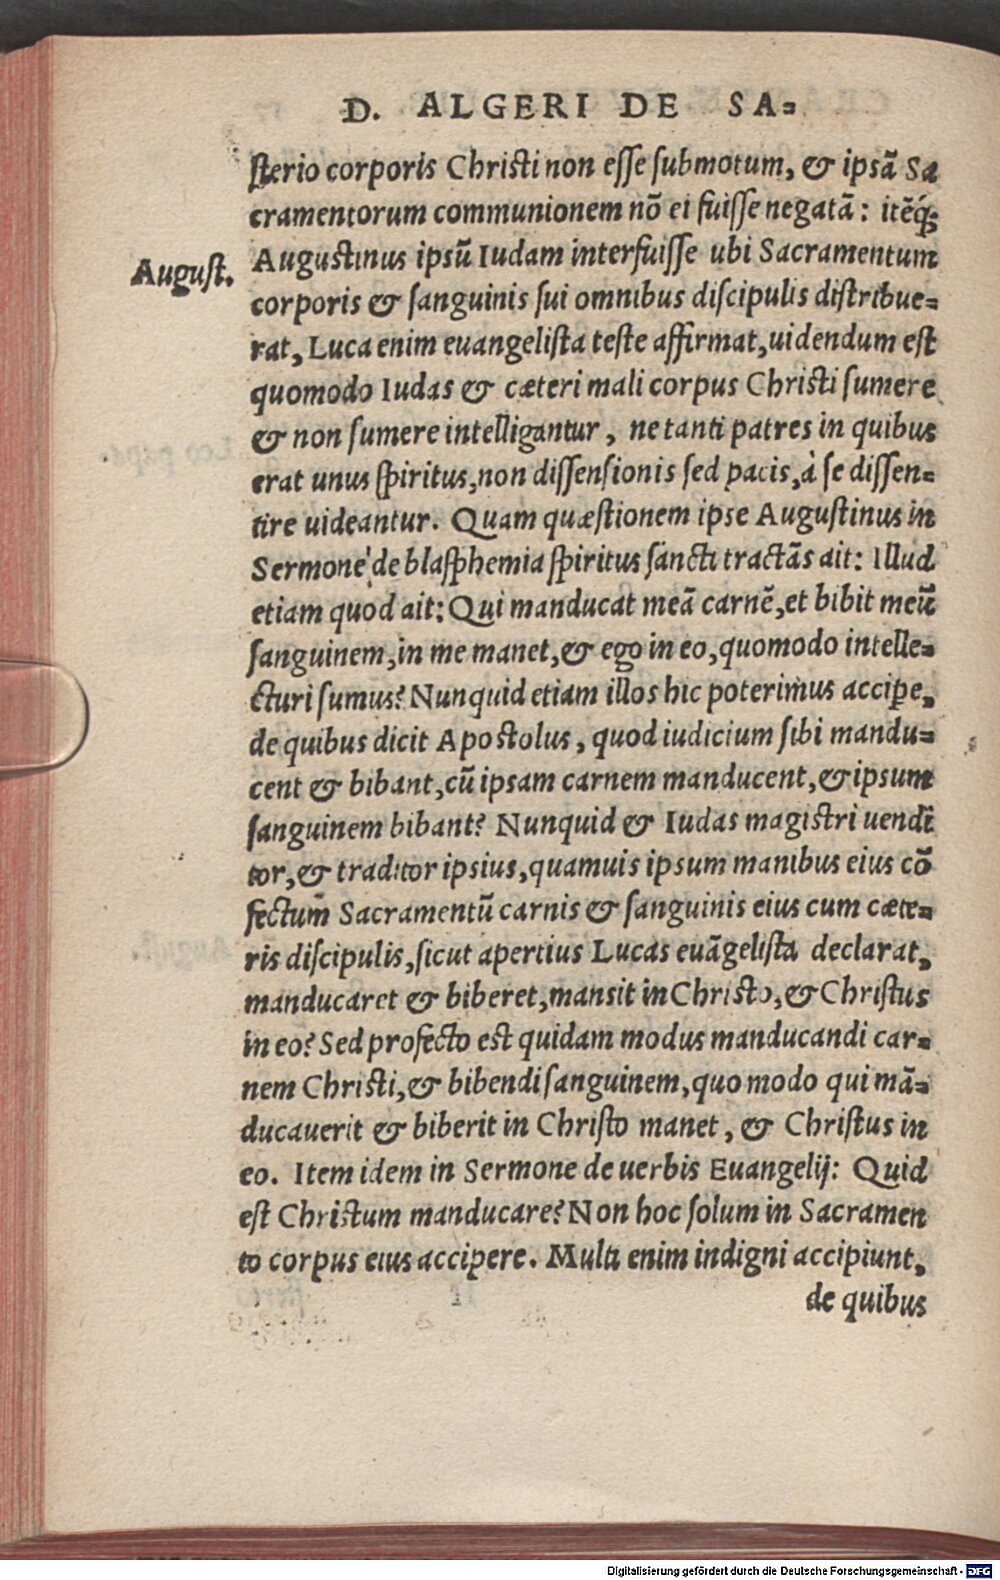 D. ALGERI DE SA-
sterio corporis Christi non esse submotum, & ipsã Sa
cramentorum communionem nõ ei fuisse negatã: itẽq́;
August.
Augustinus ipsũ Iudam interfuisse ubi Sacramentum
corporis & sanguinis sui omnibus discipulis distribue-
rat, Luca enim euangelista teste affirmat, uidendum est
quomodo Iudas & cæteri mali corpus Christi sumere
& non sumere intelligantur, ne tanti patres in quibus
erat unus spiritus, non dissensionis sed pacis, à se dissen-
tire uideantur. Quam quæstionem ipse Augustinus in
Sermone de blasphemia spiritus sancti tractãs ait: Illud
etiam quod ait: Qui manducat meã carnẽ, et bibit meũ
sanguinem, in me manet, & ego in eo, quomodo intelle-
cturi sumus? Nunquid etiam illos hic poterimus accipe,
de quibus dicit Apostolus, quod iudicium sibi mandu-
cent & bibant, cũ ipsam carnem manducent, & ipsum
sanguinem bibant? Nunquid & Iudas magistri uendi
tor, & traditor ipsius, quamuis ipsum manibus eius cõ
fectum Sacramentũ carnis & sanguinis eius cum cæte-
ris discipulis, sicut apertius Lucas euãgelista declarat,
manducaret & biberet, mansit in Christo, & Christus
in eo? Sed profecto est quidam modus manducandi car-
nem Christi, & bibendi sanguinem, quo modo qui mã-
ducauerit & biberit in Christo manet, & Christus in
eo. Item idem in Sermone de uerbis Euangelij: Quid
est Christum manducare? Non hoc solum in Sacramen
to corpus eius accipere. Multi enim indigni accipiunt,
de quibus
Digitalisierung gefördert durch die Deutsche Forschungsgemeinschaft - DFG